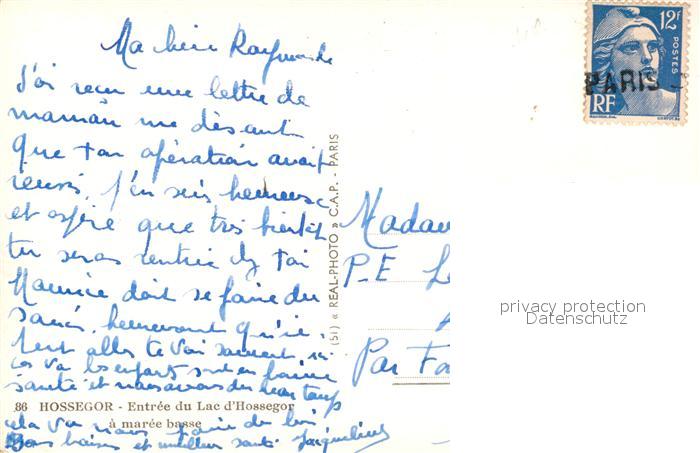 Ma chère Raymonde
J'ai reçu une lettre de
maman me disant
que ton opération avait
réussi. J'en suis heureuse
et espère que très bientôt
tu seras rentrée chez toi
Maurice doit se faire du
souci, heureusement qu'il
peut aller te voir souvent. ici
ça va les enfants sont en bonne
santé et nous avons du beau temps
cela va nous faire du bien
Bons baisers et meilleure santé Jacqueline
86 HOSSEGOR - Entrée du Lac d'Hossegor
à marée basse
(51) « REAL-PHOTO » C.A.P. - PARIS
12F
POSTES
RF
PARIS -
Madam
P.E Le
Par Fa
privacy protection
Datenschutz